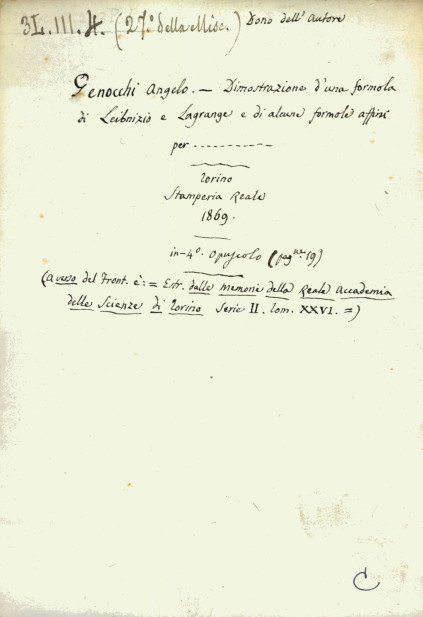 3L.III.4. (27.º della Misc.) Dono dell' Autore
Genocchi Angelo. — Dimostrazione d'una formola
di Leibnizio e Lagrange e di alcune formole affini
per ----------
Torino
Stamperia Reale
1869.
in-4º. Opuscolo (pagne. 19)
(a verso del Front. è: = Estr. dalle memorie della Reale Accademia
delle Scienze di Torino Serie II. Tom. XXVI. =)
C